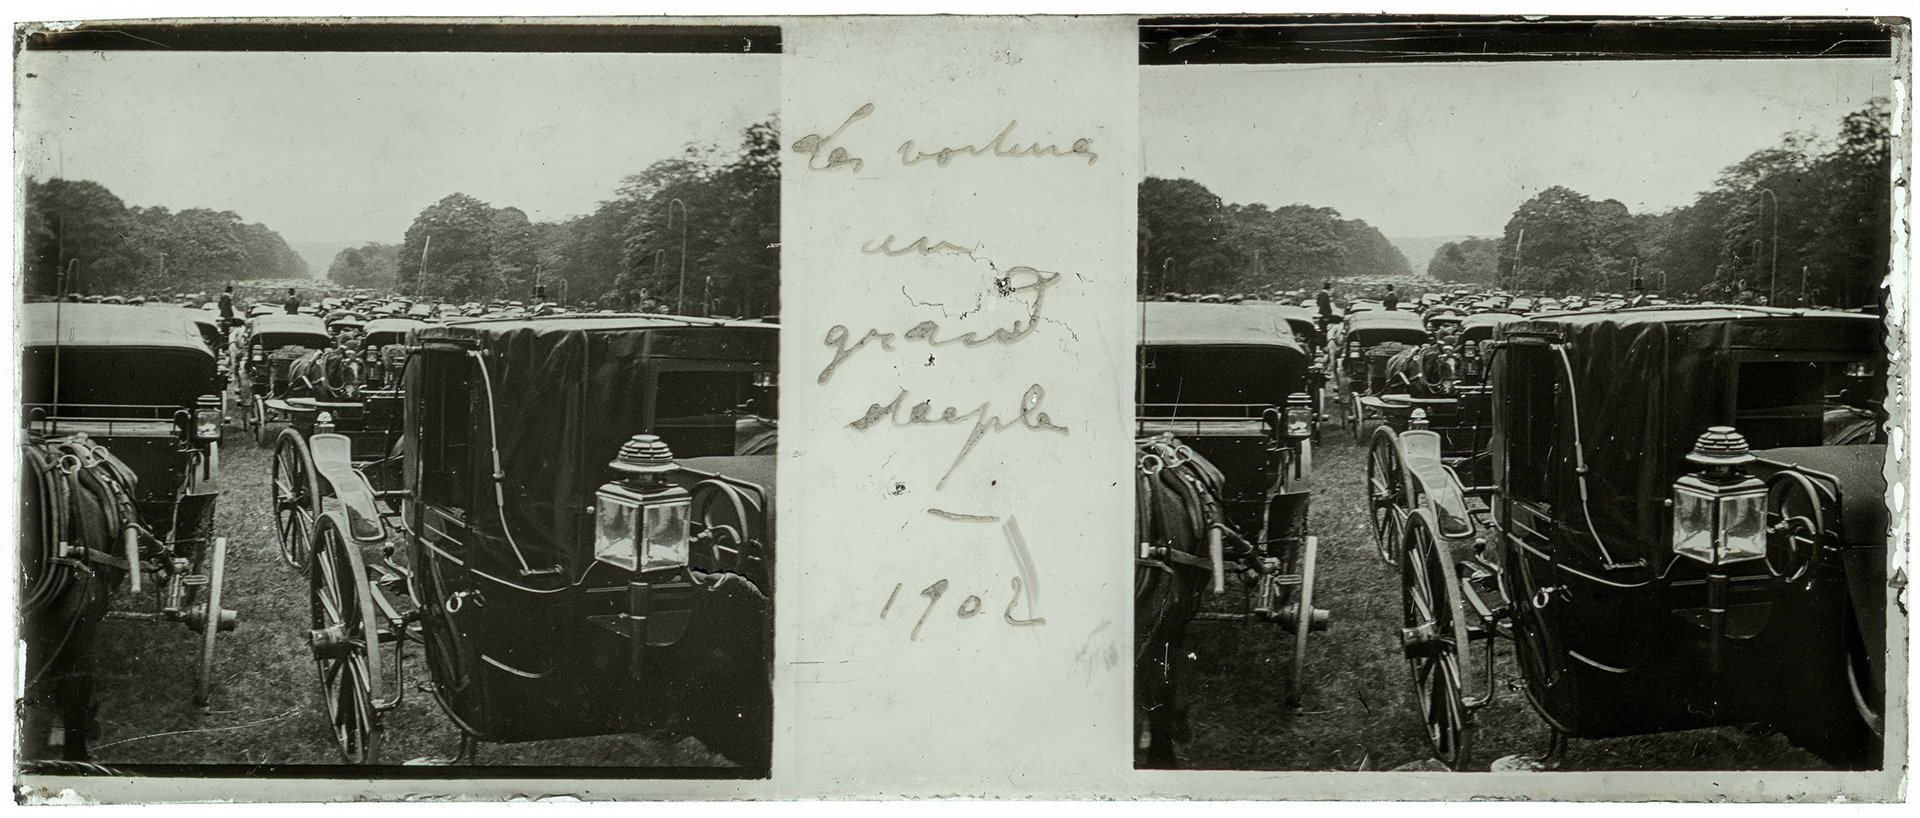 Les voitures
au
grand
steeple
1902